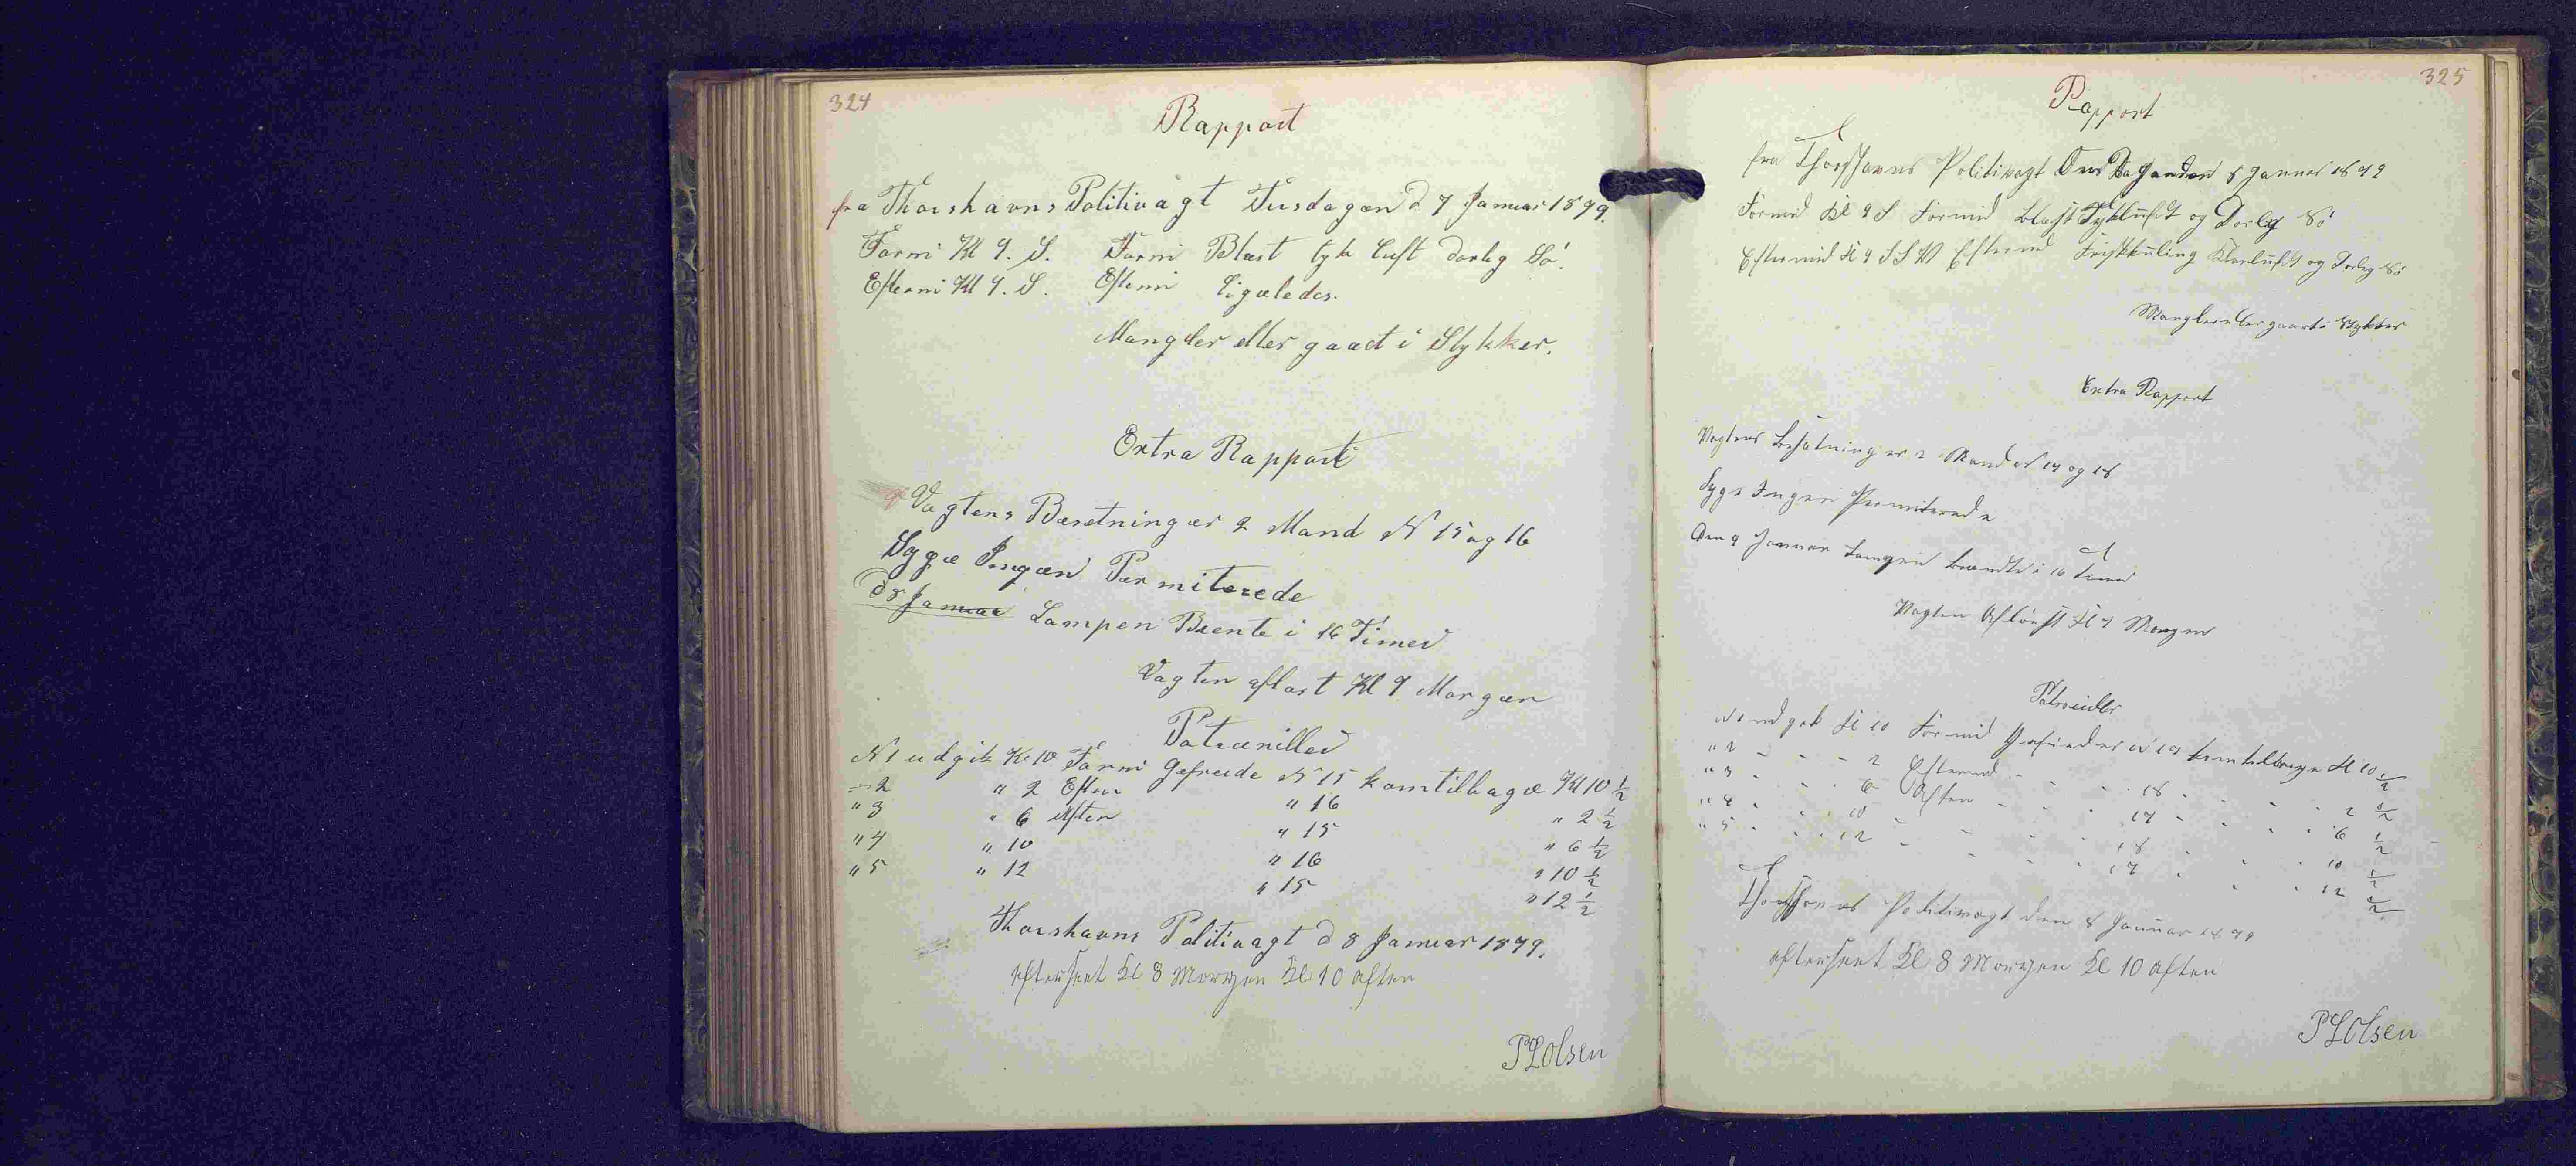 324
Rapport
fra Thorshavns Politivagt Tirsdagen d 7 Januar 1879.
Formi Kl 9. S. Formi Blæst tyk luft darlig Sö.
Eftermi Kl 9. S. Eftermi ligeledes.
Mangler eller gaaet i Stykker.
Extra Rapport
Vagtens Besetning er 2 Mand N 15 og 16
Syge Ingen Permiterede
d 8 Januar Lampen Brente i 16 Timer
Vagten aflöst Kl 9 Morgen
Patrouiller
N 1 udgik Kl 10 Formi Gefreide N 15 kom tilbage Kl 10 1/2
" 2 " 2 Efter " 16 " 2 1/2
" 3 " 6 Aften " 15 " 6 1/2
" 4 " 10 " 16 " 10 1/2
" 5 " 12 " 15 " 12 1/2
Thorshavns Politivagt d 8 Januar 1879.
efterseet Kl 8 Morgen Kl 10 Aften
P L Olsen
325
Rapport
fra Thorshavns Politivagt Ons Dagenden 8 Januar 1879
Formid Kl 9 S Formid Blæst Tykluft og Dorlig Sö
Eftermid Kl 9 SSV Eftermid Friskkuling Klarluft og Dorlig Sö
Mangler eller gaaet i Stykker
Extra Rapport
Vagtens Besætning er 2 Mand N 17 og 18
Syge Ingen Permiterede
Den 9 Januar Lampen brændte i 16 Timer
Vagten Aflöst Kl 9 Morgen
Patrouiller
N 1 udgik Kl 10 Formid Gefreider N 17 kom tilbage Kl 10 1/2
" 2 - - - 2 Eftermid - - - 18 - - - 2 1/2
" 3 - - - 6 Aften - - - 17 - - - 6 1/2
" 4 - - - 10 - - - 18 - - - 10 1/2
" 5 - - - 12 - - - 17 - - - 12 1/2
Thorshavns Politivagt den 8 Januar 1879
efterseet Kl 8 Morgen Kl 10 Aften
P L Olsen